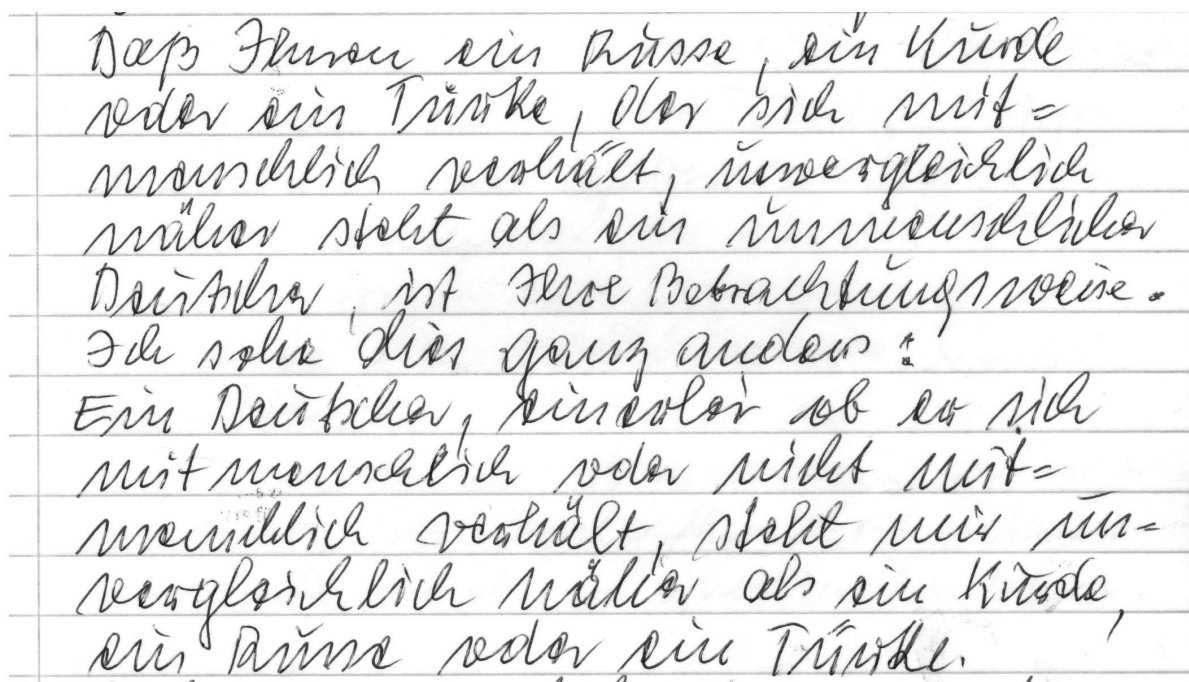 Daß Ihnen ein Russe, ein Kurde
oder ein Türke, der sich mit=
menschlich verhält, unvergleichlich
näher steht als ein unmenschlicher
Deutscher, ist Ihre Betrachtungsweise.
Ich sehe dies ganz anders:
Ein Deutscher, einerlei ob er sich
mitmenschlich oder nicht mit=
menschlich verhält, steht mir un=
vergleichlich näher als ein Kurde,
ein Russe oder ein Türke.